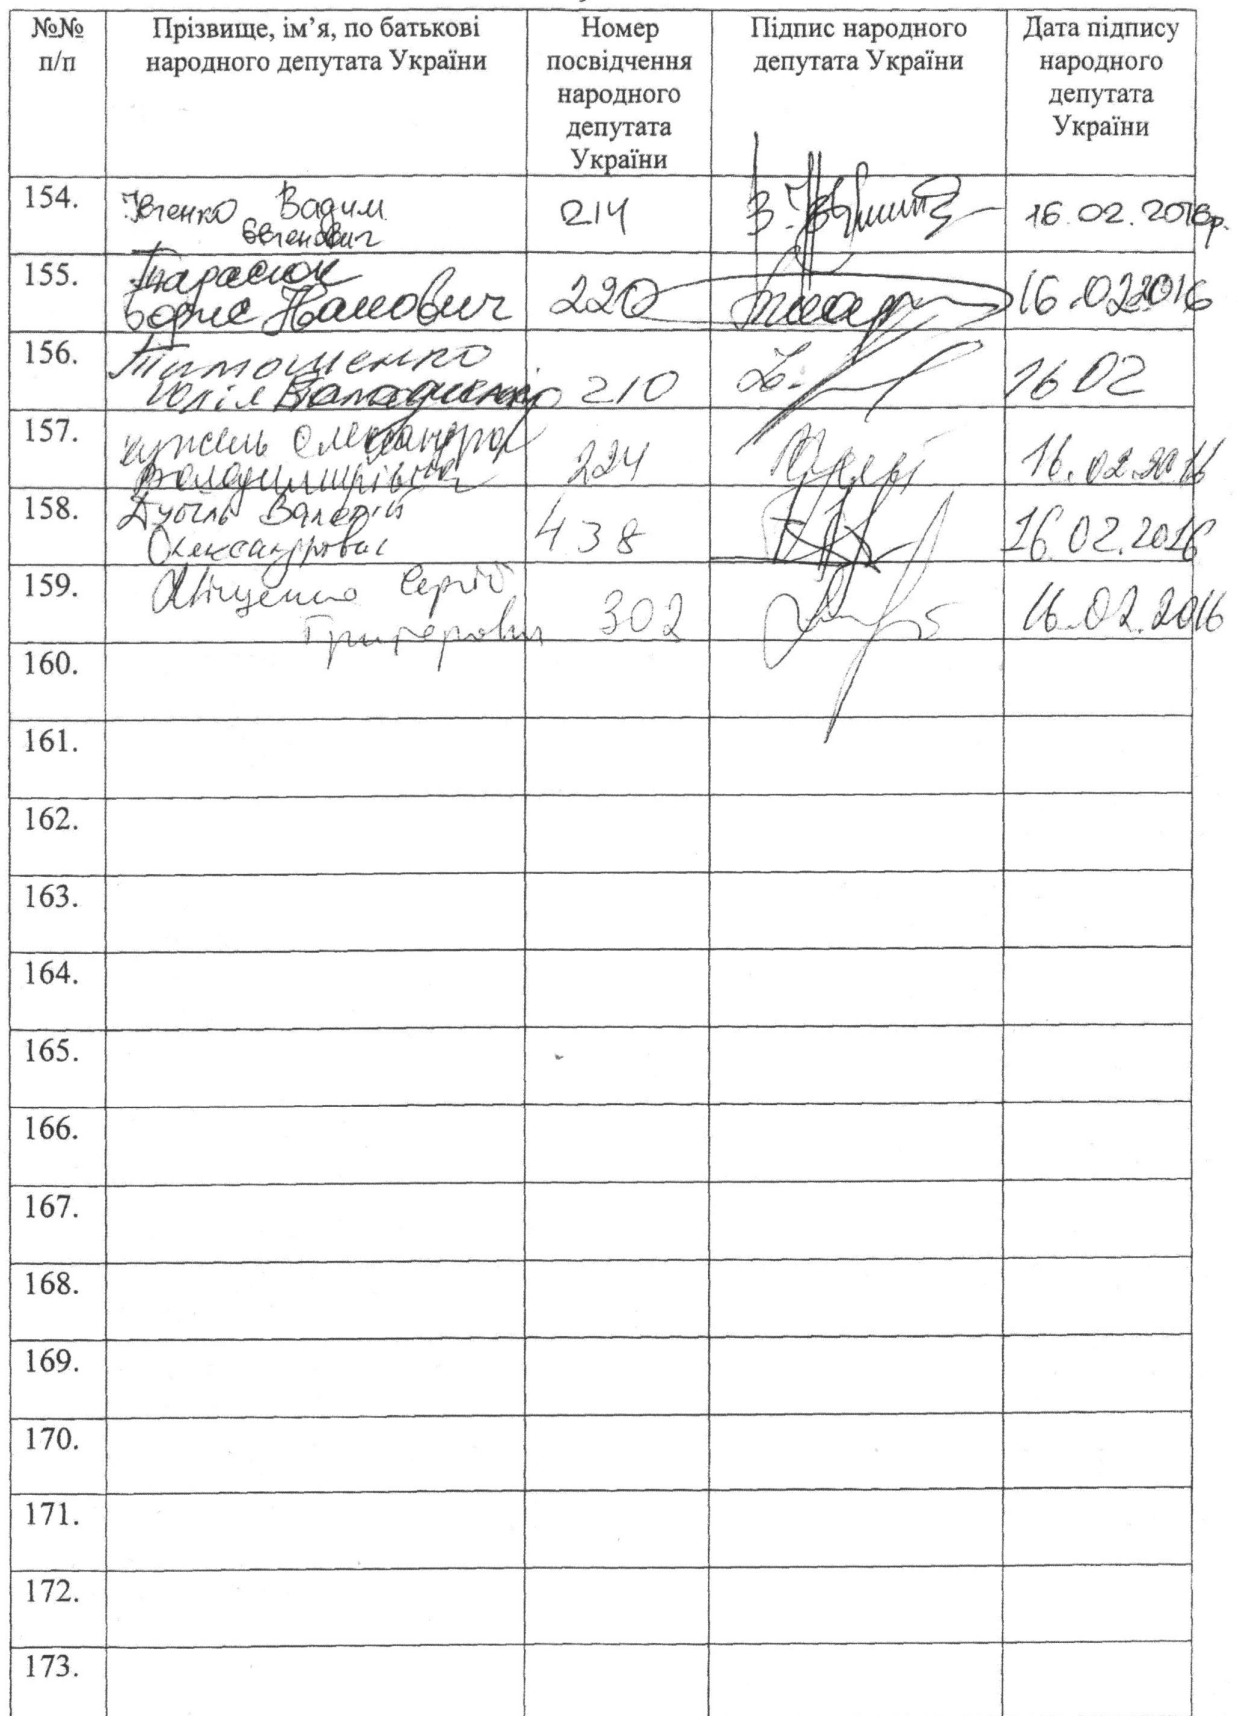 №№ п/п
Прізвище, ім’я, по батькові народного депутата України
Номер посвідчення народного депутата України
Підпис народного депутата України
Дата підпису народного депутата України
154. Івченко Вадим Євгенович 214 16.02.2016р.
155. Тарасюк Борис Іванович 220 16.02 2016
156. Тимошенко Юлія Володимирівна 210 16 02
157. Кужель Олександра Володимирівна 224 16.02.2016
158. Дубіль Валерій Олександрович 438 16.02.2016
159. Міщенко Сергій Григорович 302 16.02.2016
160.
161.
162.
163.
164.
165.
166.
167.
168.
169.
170.
171.
172.
173.